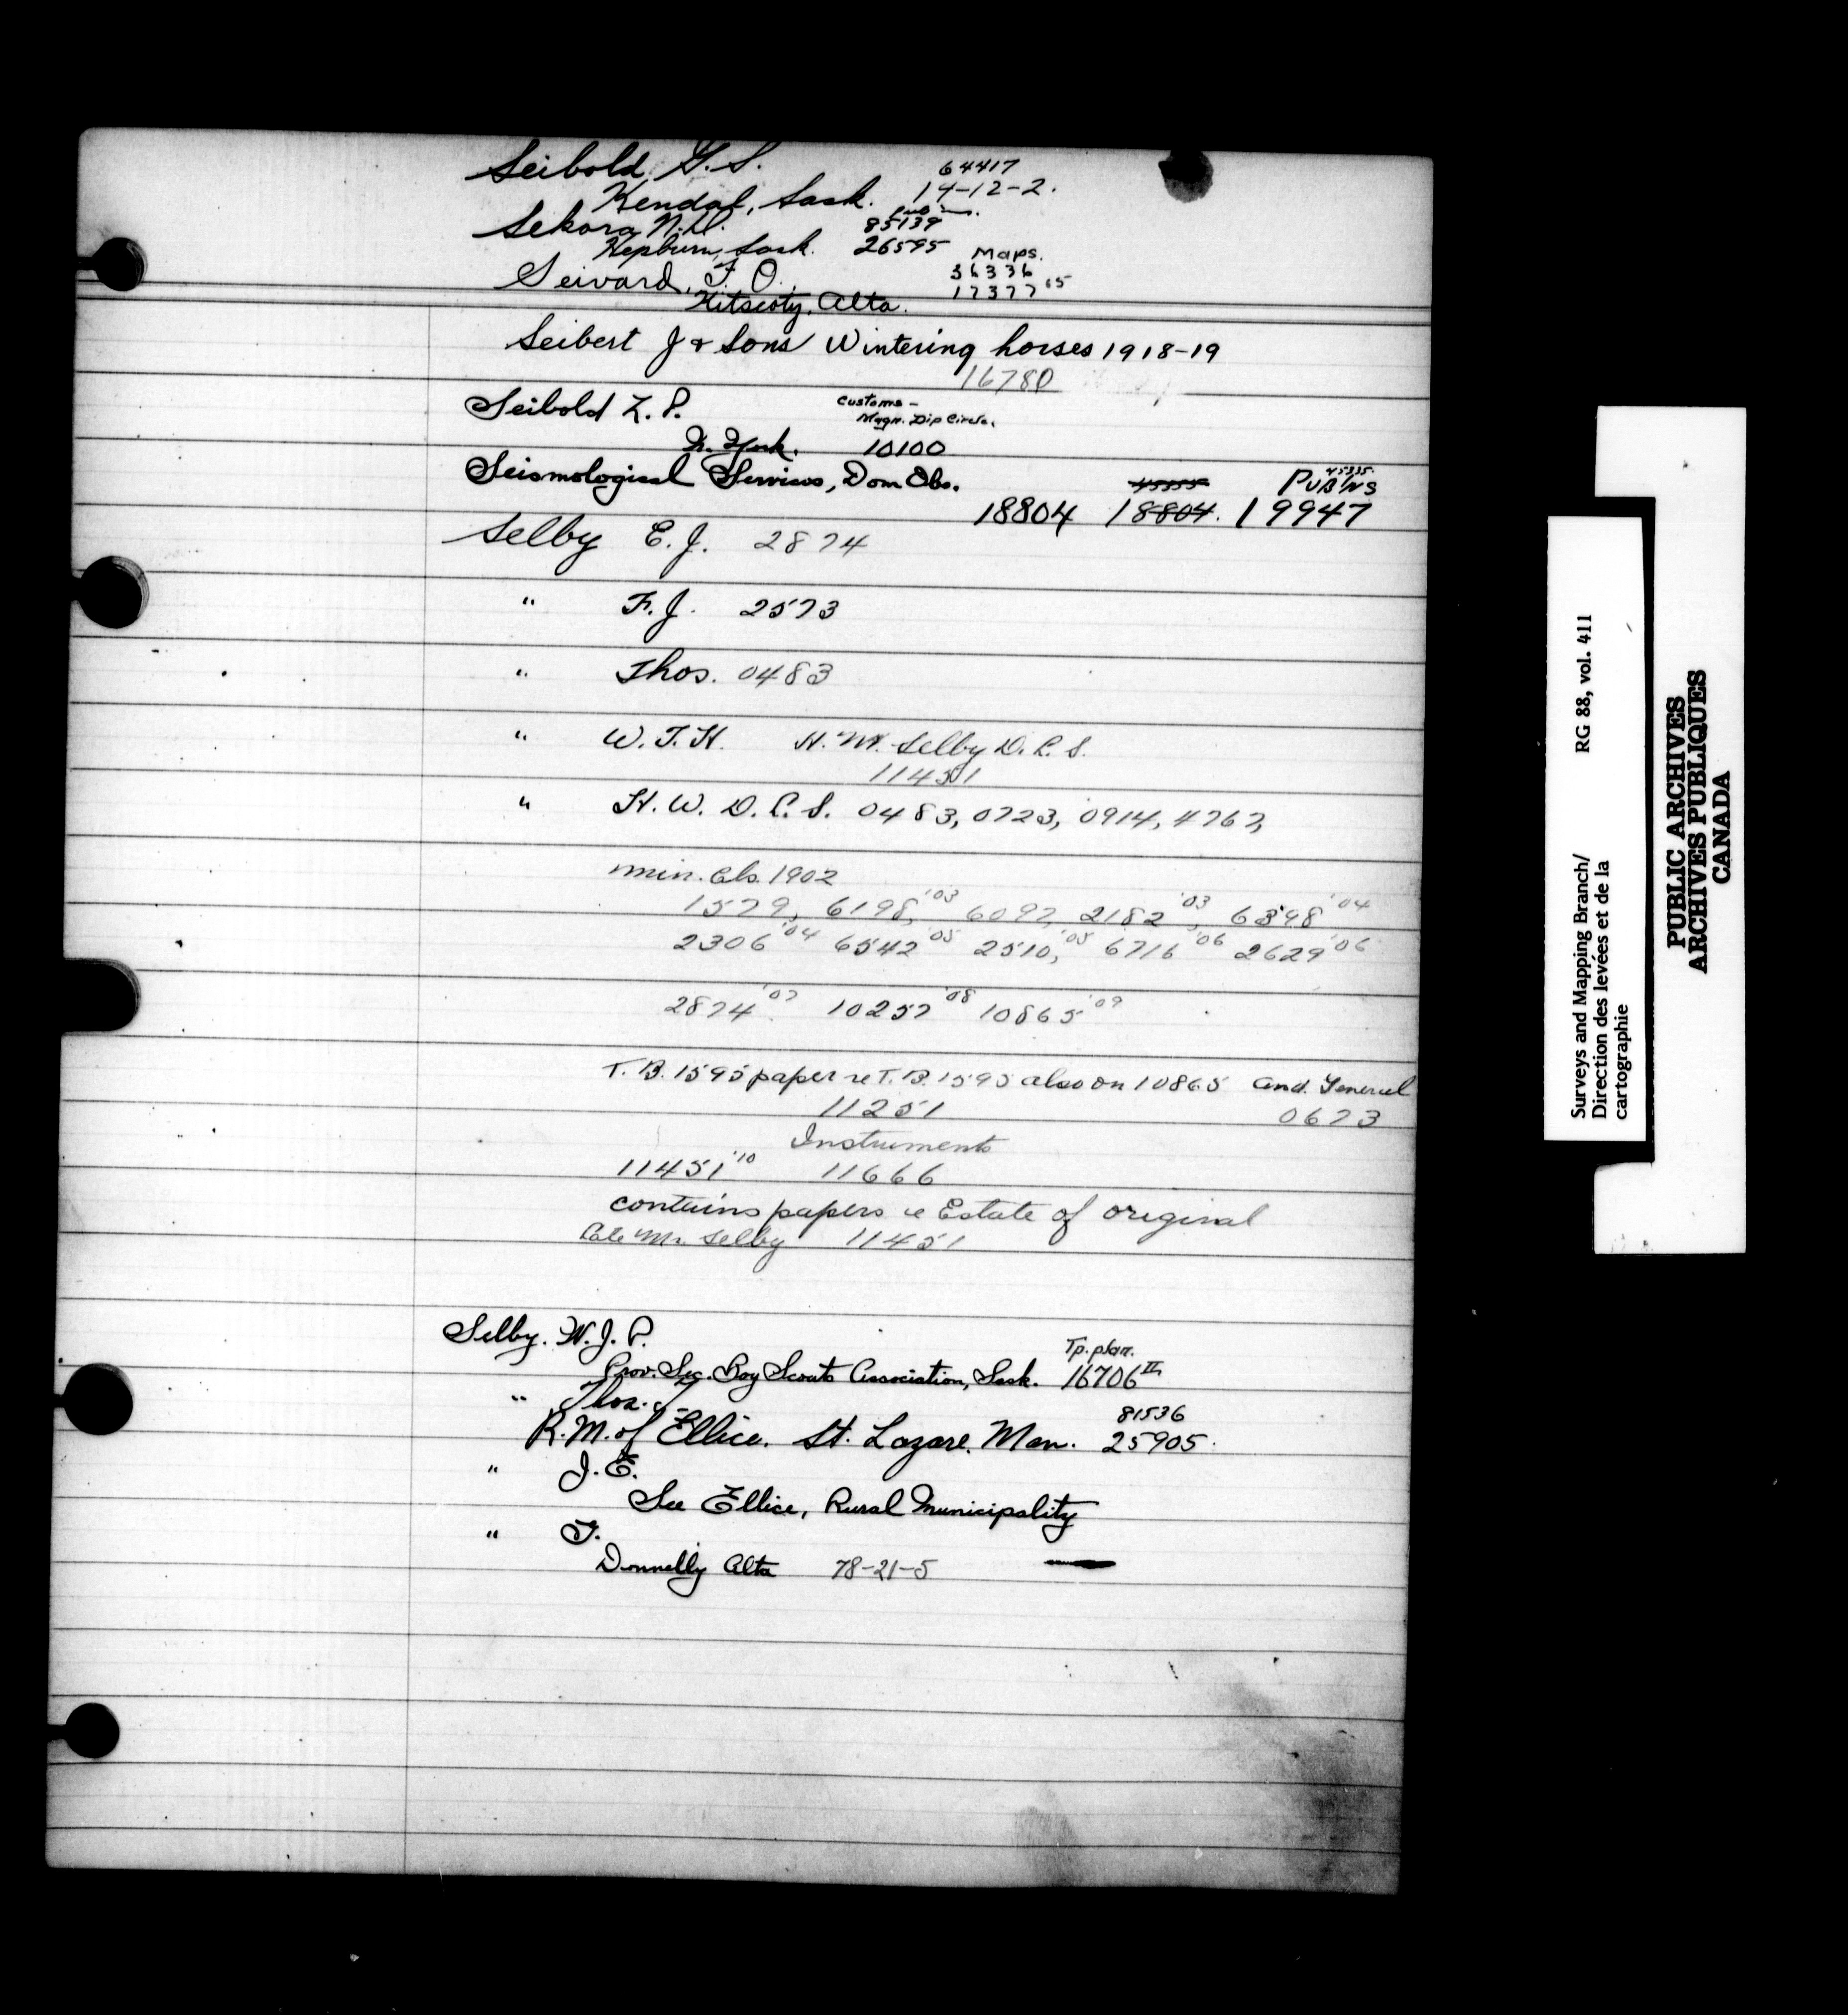 Seibold, G.S. 64417
Kendal, Sask. 14-12-2.
Sekora N.D. 85139
Hepburn, Sask. 26595 Maps.
Seivard, F. O. 36336
Kitscoty, Alta. 17377 '15
Seibert J & Sons Wintering horses 1918-19
16780
Seibold L. P. Customs -
Magn. Dip Circle.
N. York. 10100
Seismological Services, Dom Obs. 45335 45335.
PUB'NS
18804 18804. 19947
Selby E.J. 2874
" F.J. 2573
" Thos. 0483
" W.T.H. H.W. Selby D.L.S.
11451
" H.W. D.L.S. 0483, 0723, 0914, 4767,
min. Cls. 1902
1579, 6198,'03 6097, 2182 '03, 6398 '04
2306 '04 6542 '05 2510, '05 6716 '06 2629 '06
2874 '07 10257 '08 10865 '09
T.B. 1595 paper re T.B. 1595 also on 10865 and. General
11251 0673
Instruments
11451 '10 11666
contains papers re Estate of original
Late Mr. Selby 11451
Selby. W.J.P. Tp. plan.
Prov. Sec. Boy Scouts Association, Sask. 16706 II
" Thos. J. 81536
R.M. of Ellice. St. Lazare. Man. 25905.
" J.E.
See Ellice, Rural Municipality
" T.
Donnelly Alta 78-21-5 —
Surveys and Mapping Branch/ RG 88, vol. 411
Direction des levées et de la
cartographie
PUBLIC ARCHIVES
ARCHIVES PUBLIQUES
CANADA